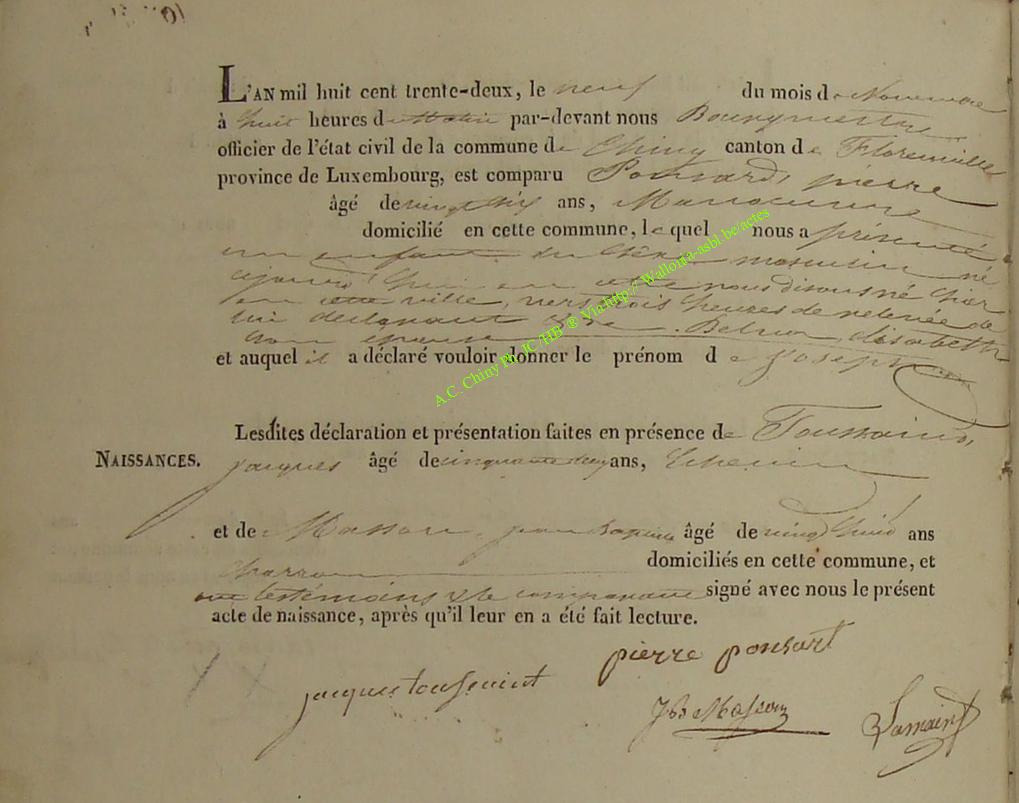 L'AN mil huit cent trente-deux, le neuf du mois de Novembre
à huit heures du Matin par-devant nous Bourgmestre
officier de l'état civil de la commune de Chiny canton de Florenville
province de Luxembourg, est comparu Ponsard, pierre
âgé de vingt six ans, Manoeuvre
domicilié en cette commune, le quel nous a présenté
un enfant du sexe masculin né
nous disons né hier
en cette ville, vers trois heures de relevée de
lui déclarant et de
son épouse
et auquel il a déclaré vouloir donner le prénom de Joseph
Lesdites déclaration et présentation faites en présence de Toussaint,
NAISSANCES. jacques âgé de cinquante deux ans,
et de Masson jean baptiste âgé de vingt huit ans
charron domiciliés en cette commune, et
témoins et le comparant signé avec nous le présent
acte de naissance, après qu'il leur en a été fait lecture.
pierre ponsart
jacques toussaint
JB Masson
A.C. Chiny Ph JC/HB @ Via http:// Wallonia-asbl.be/actes